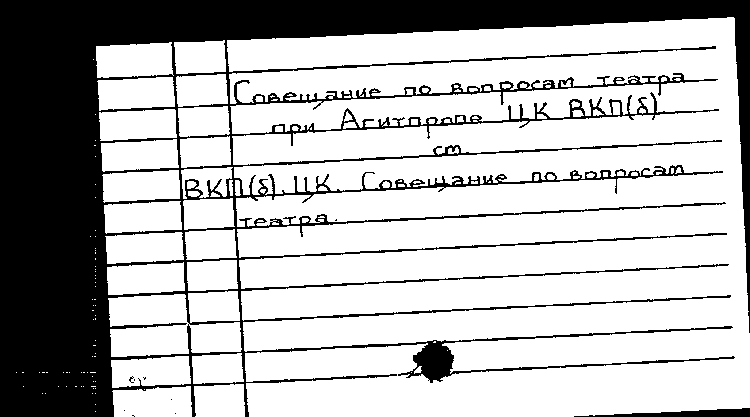 Совещание по вопросам театра
при Агитпропе ЦК ВКП(б)
см.
ВКП(б). ЦК. Совещание по вопросам
театра.